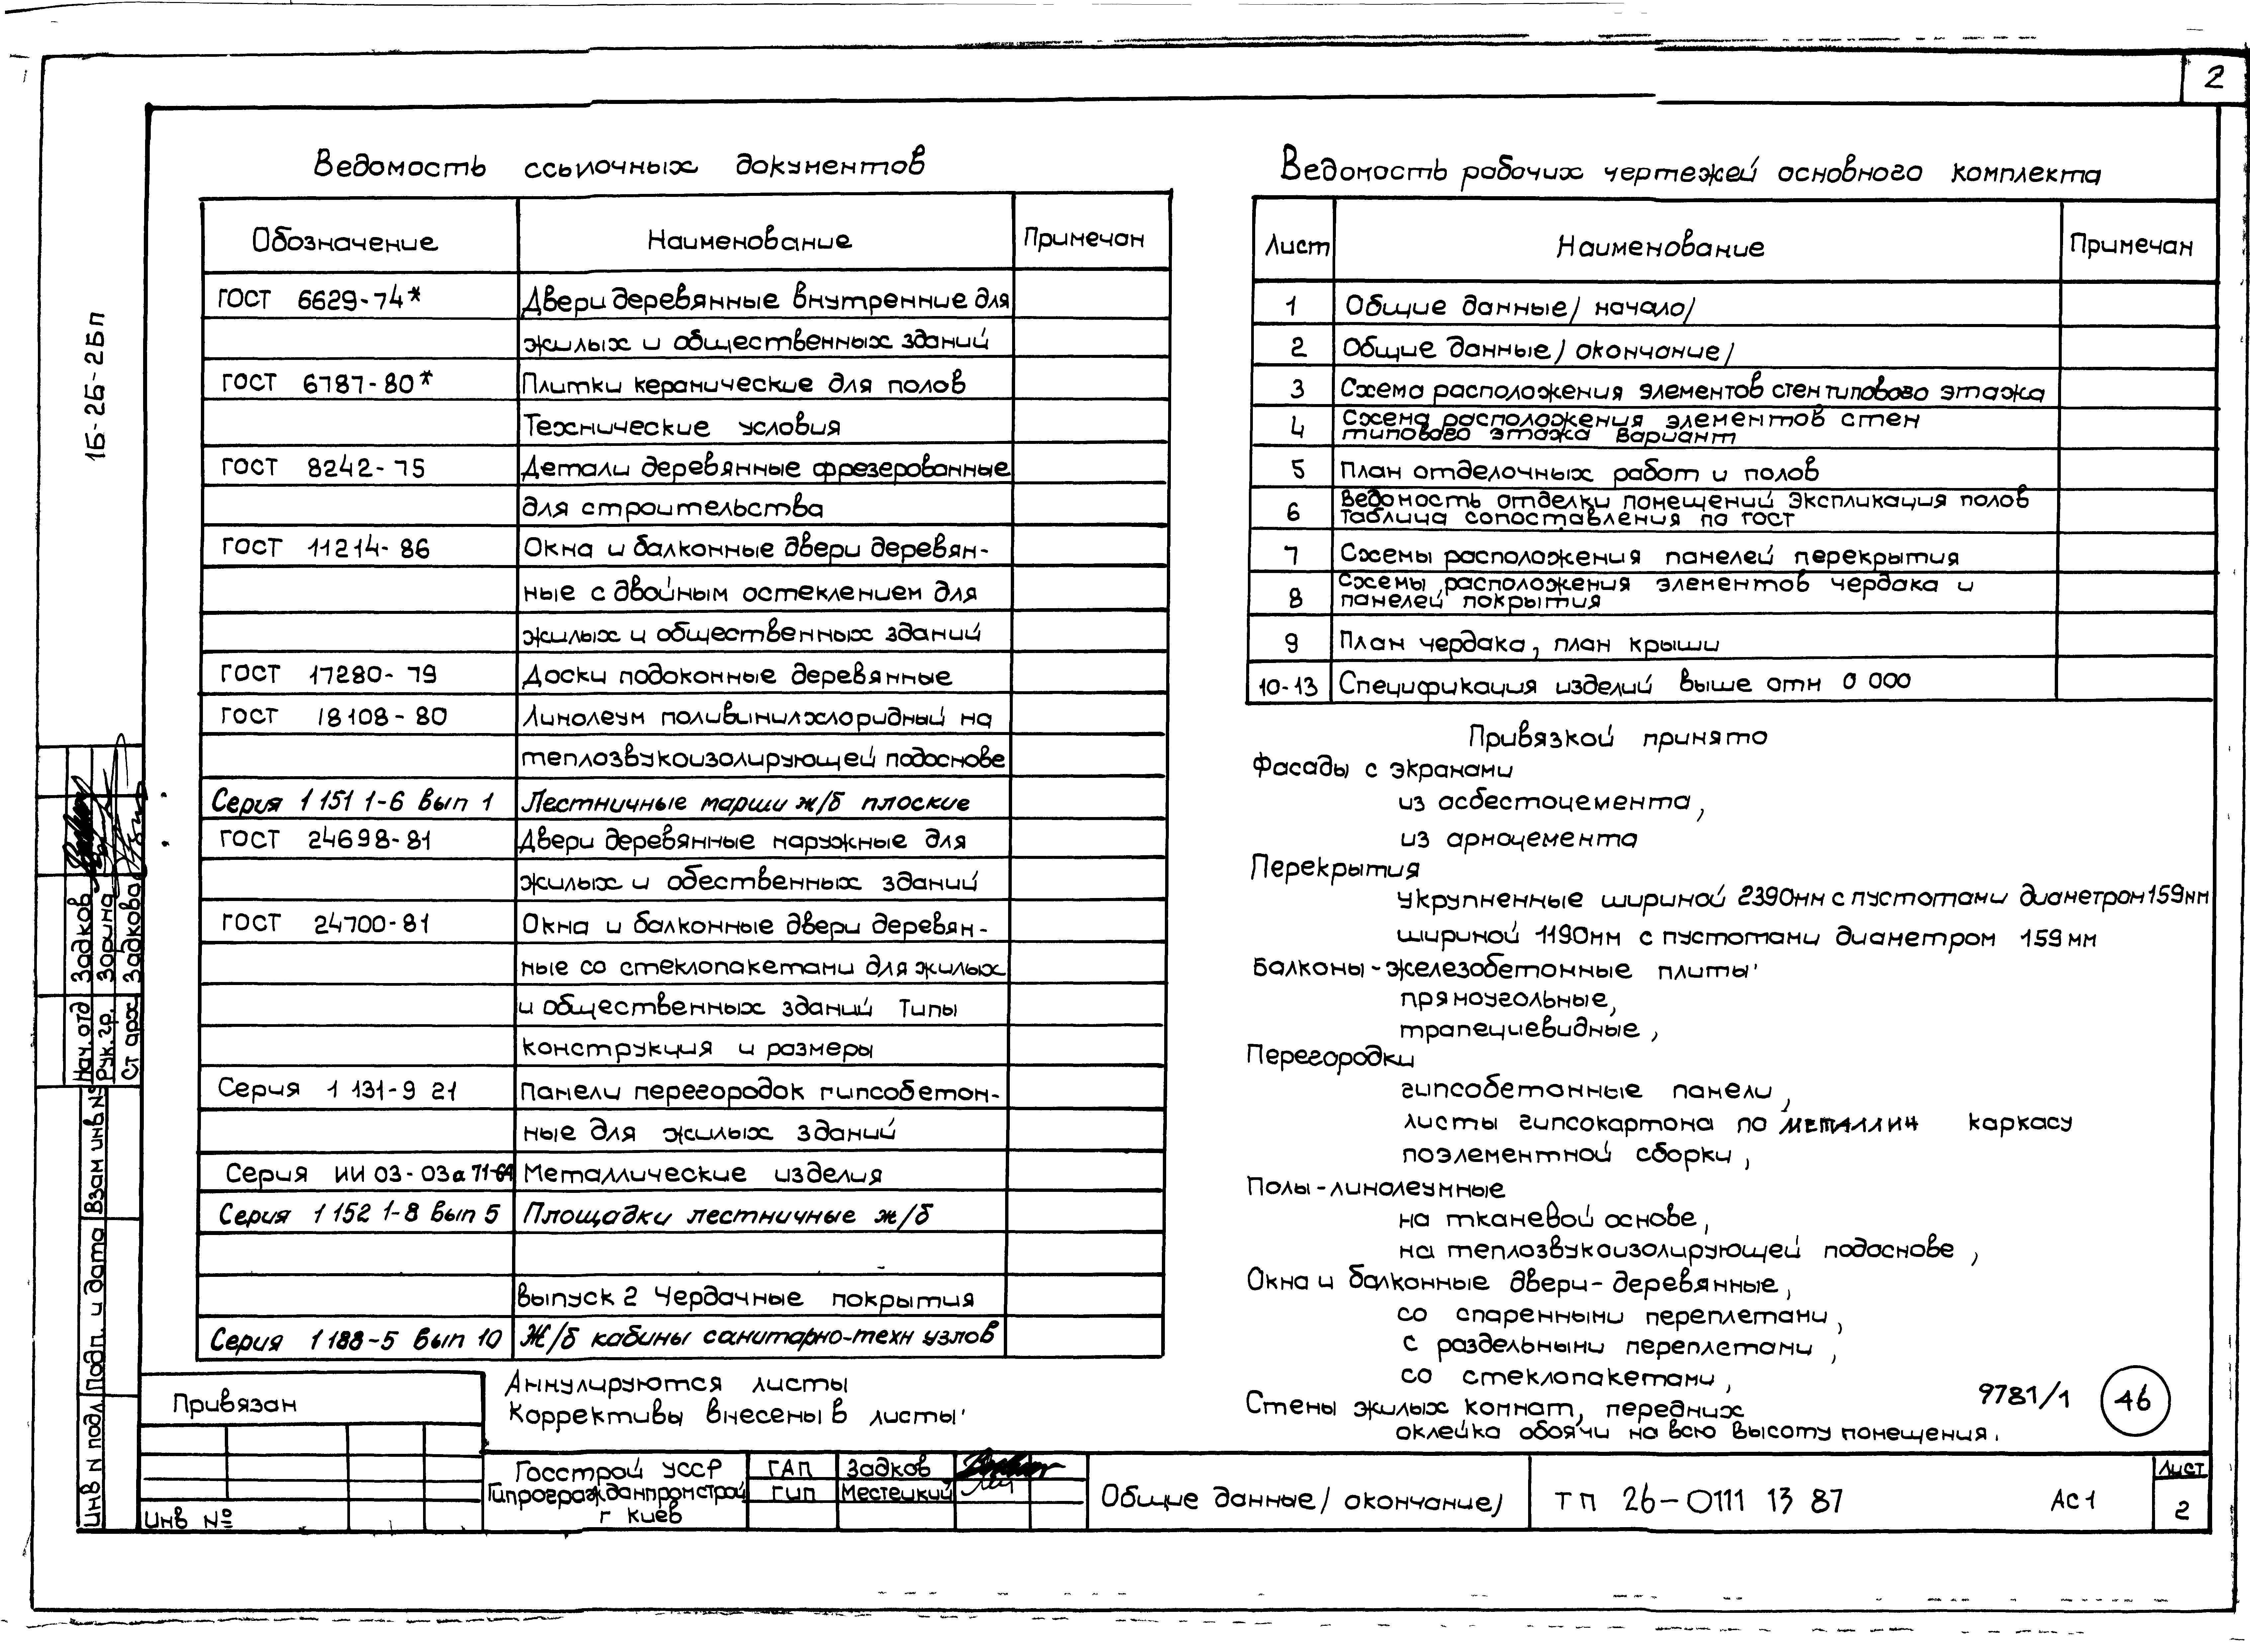 2
1Б-2Б-2БП
Ведомость ссылочных документов
Обозначение Наименование Примечан
ГОСТ 6629-74* Двери деревянные внутренние для
жилых и общественных зданий
ГОСТ 6787-80* Плитки керамические для полов
Технические условия
ГОСТ 8242-75 Детали деревянные фрезерованные
для строительства
ГОСТ 11214-86 Окна и балконные двери деревян-
ные с двойным остеклением для
жилых и общественных зданий
ГОСТ 17280-79 Доски подоконные деревянные
ГОСТ 18108-80 Линолеум поливинилхлоридный на
теплозвукоизолирующей подоснове
Серия 1 151 1-6 вып 1 Лестничные марши ж/б плоские
ГОСТ 24698-81 Двери деревянные наружные для
жилых и обественных зданий
ГОСТ 24700-81 Окна и балконные двери деревян-
ные со стеклопакетами для жилых
и общественных зданий Типы
конструкция и размеры
Серия 1 131-9 21 Панели перегородок гипсобетон-
ные для жилых зданий
Серия ИИ 03-03а 71-64 Металлические изделия
Серия 1 152 1-8 вып 5 Площадки лестничные ж/б
выпуск 2 Чердачные покрытия
Серия 1 188-5 вып 10 Ж/б кабины санитарно-техн узлов
Ведомость рабочих чертежей основного комплекта
Лист Наименование Примечан
1 Общие данные/начало/
2 Общие данные/окончание/
3 Схема расположения элементов стен типового этажа
4 Схема расположения элементов стен
типового этажа Вариант
5 План отделочных работ и полов
6 Ведомость отделки помещений Экспликация полов
Таблица сопоставления по гост
7 Схемы расположения панелей перекрытия
8 Схемы расположения элементов чердака и
панелей покрытия
9 План чердака, план крыши
10-13 Спецификация изделий выше отм 0 000
Привязкой принято
Фасады с экранами
из асбестоцемента,
из армоцемента
Перекрытия
укрупненные шириной 2390мм с пустотами диаметром 159мм
шириной 1190мм с пустотами диаметром 159 мм
Балконы-железобетонные плиты
прямоугольные,
трапециевидные,
Перегородки
гипсобетонные панели,
листы гипсокартона по металлич каркасу
поэлементной сборки,
Полы-линолеумные
на тканевой основе,
на теплозвукоизолирующей подоснове,
Окна и балконные двери-деревянные,
со спаренными переплетами,
с раздельными переплетами,
со стеклопакетами,
Стены жилых комнат, передних
оклейка обоями на всю высоту помещения.
9781/1 46
Нач. отд Задков
Рук. гр. Зорина
Ст арх Задкова
Взам инв №
Подп. и дата
Инв N подл
Привязан
Инв №
Аннулируются листы
Коррективы внесены в листы
Госстрой УССР
Гипрогражданпромстрой
г Киев
ГАП Задков
ГИП Местецкий
Общие данные/окончание/
ТП 26-0111 13 87 АС1
Лист
2